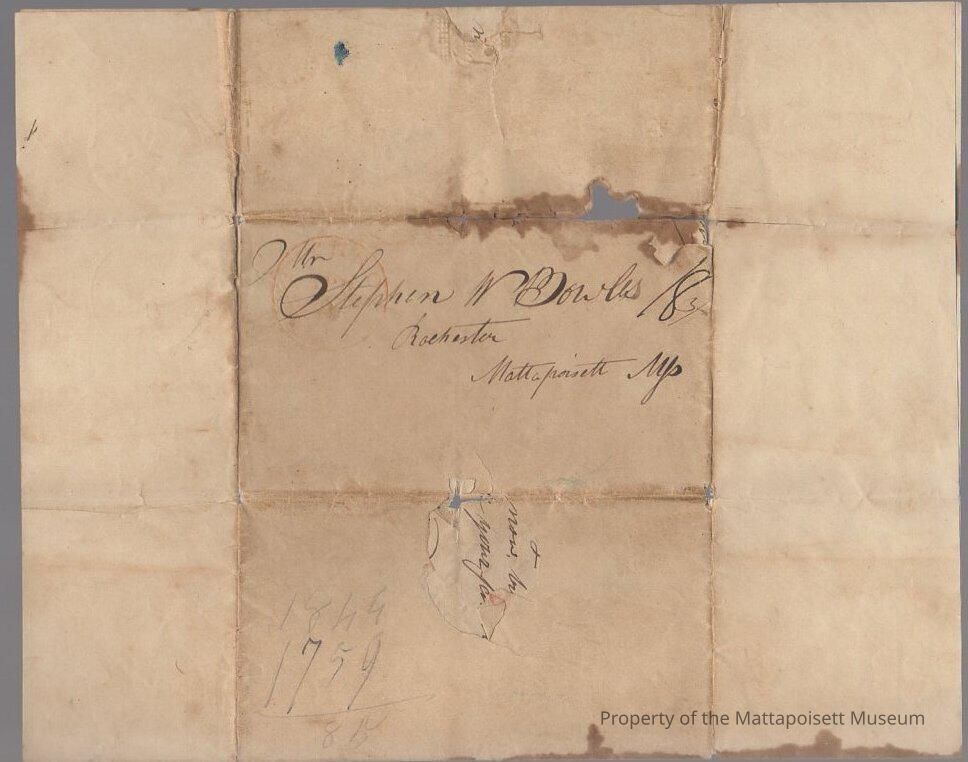 Mr
Stephen W Bowles
Rochester
Mattapoisett Ms
now, by
your
1844
1759
85
Property of the Mattapoisett Museum